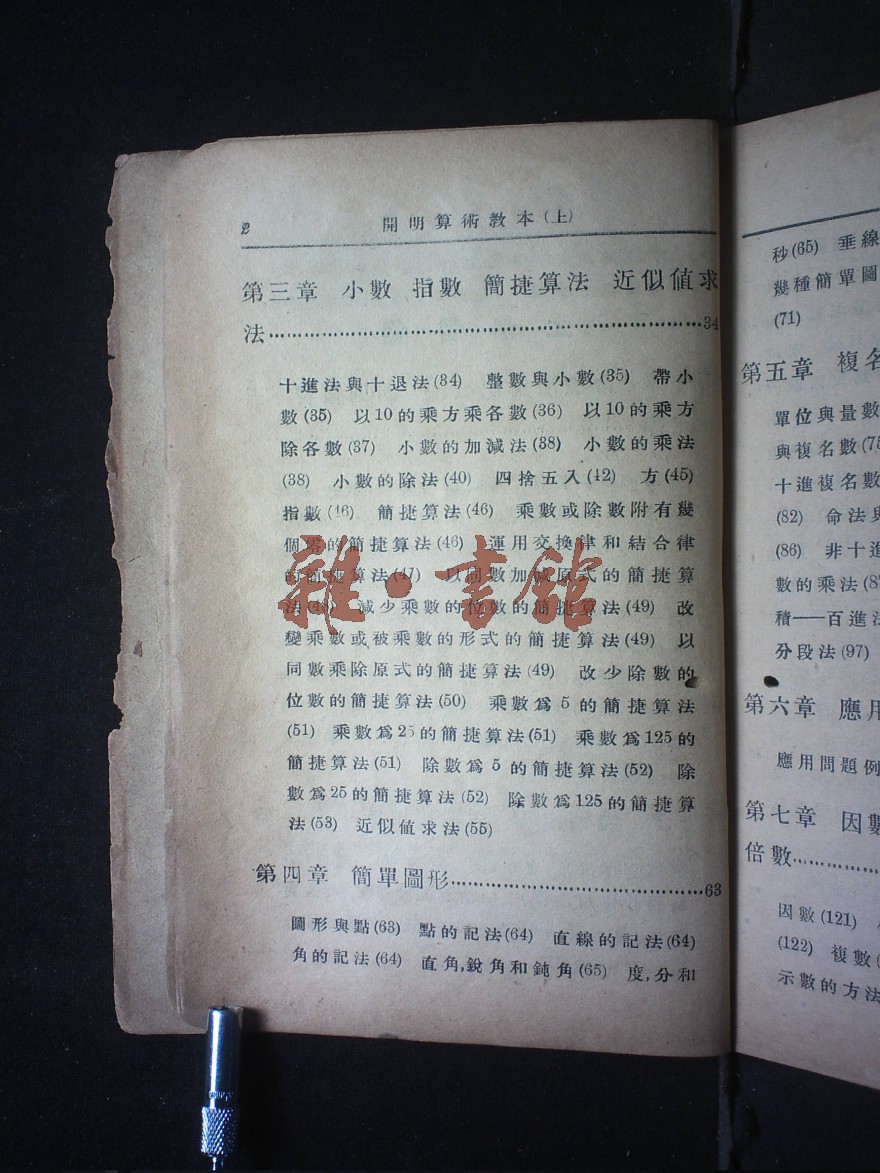 2 開明算術教本(上)
第三章 小數 指數 簡捷算法 近似値求
法……34
十進法與十退法(34) 整數與小數(35) 帶小
數(35) 以10的乘方乘各數(36) 以10的乘方
除各數(37) 小數的加減法(38) 小數的乘法
(38) 小數的除法(40) 四捨五入(42) 方(45)
指數(46) 簡捷算法(46) 乘數或除數附有幾
個零的簡捷算法(46) 運用交換律和結合律
的簡捷算法(47) 以同數加減原式的簡捷算
法(48) 減少乘數的位數的簡捷算法(49) 改
變乘數或被乘數的形式的簡捷算法(49) 以
同數乘除原式的簡捷算法(49) 改少除數的
位數的簡捷算法(50) 乘數爲5的簡捷算法
(51) 乘數爲25的簡捷算法(51) 乘數爲125的
簡捷算法(51) 除數爲5的簡捷算法(52) 除
數爲25的簡捷算法(52) 除數爲125的簡捷算
法(53) 近似値求法(55)
第四章 簡單圖形……63
圖形與點(63) 點的記法(64) 直線的記法(64)
角的記法(64) 直角,銳角和鈍角(65) 度,分和
雜·書館
秒(65) 垂線
幾種簡單圖
(71)
第五章 複名
單位與量數
與複名數(75
十進複名數
(82) 命法與
(86) 非十進
數的乘法(8
積——百進法
分段法(97)
第六章 應用
應用問題例
第七章 因數
倍數……
因數(121)
(122) 複數(
示數的方法